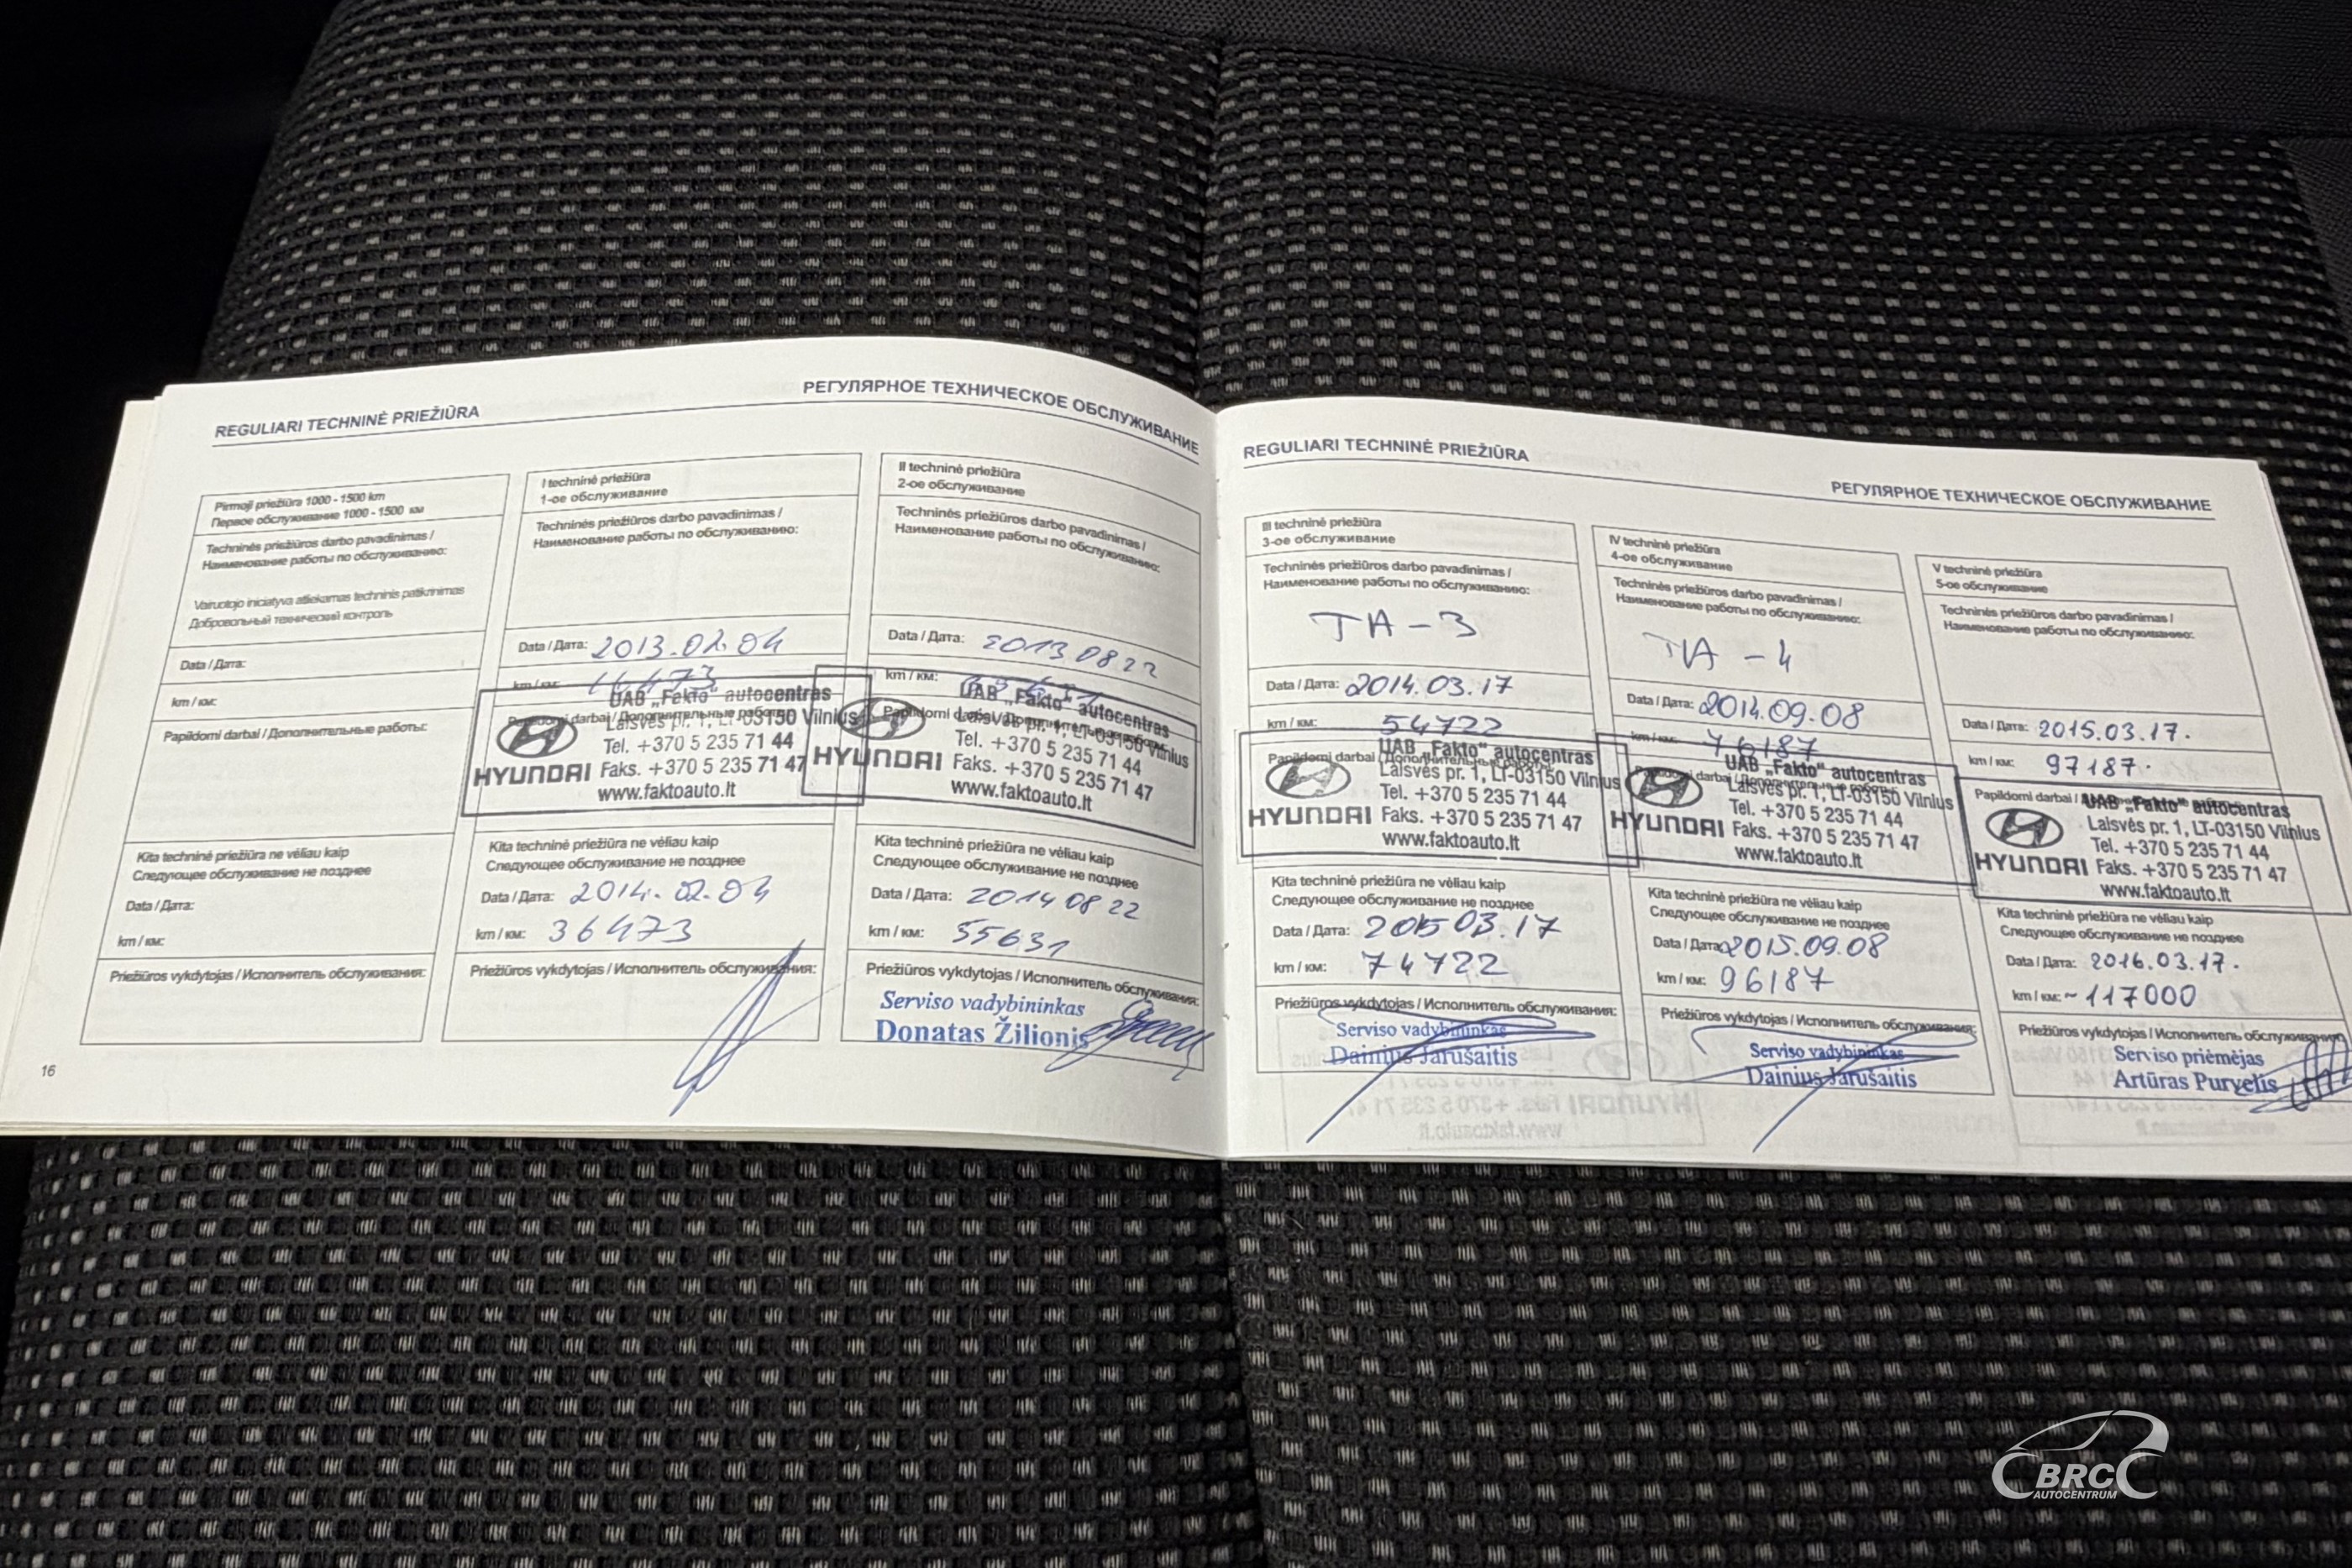 REGULIARI TECHNINĖ PRIEŽIŪRA
РЕГУЛЯРНОЕ ТЕХНИЧЕСКОЕ ОБСЛУЖИВАНИЕ
Pirmoji priežiūra 1000 - 1500 km
Первое обслуживание 1000 - 1500 км
Techninės priežiūros darbo pavadinimas /
Наименование работы по обслуживанию:
Vairuotojo iniciatyva atliekamas techninis patikrinimas
Добровольный технический контроль
Data / Дата:
km / км:
Papildomi darbai / Дополнительные работы:
Kita techninė priežiūra ne vėliau kaip
Следующее обслуживание не позднее
Data / Дата:
km / км:
Priežiūros vykdytojas / Исполнитель обслуживания:
16
I techninė priežiūra
1-ое обслуживание
Techninės priežiūros darbo pavadinimas /
Наименование работы по обслуживанию:
Data / Дата: 2013.02.04
km / км:
UAB „Fakto“ autocentras
Laisvės pr. 1, LT-03150 Vilnius
Tel. +370 5 235 71 44
HYUNDAI Faks. +370 5 235 71 47
www.faktoauto.lt
Kita techninė priežiūra ne vėliau kaip
Следующее обслуживание не позднее
Data / Дата: 2014.02.04
km / км: 36473
Priežiūros vykdytojas / Исполнитель обслуживания:
II techninė priežiūra
2-ое обслуживание
Techninės priežiūros darbo pavadinimas /
Наименование работы по обслуживанию:
Data / Дата: 2013 08 22
km / км:
UAB „Fakto“ autocentras
Laisvės pr. 1, LT-03150 Vilnius
Tel. +370 5 235 71 44
HYUNDAI Faks. +370 5 235 71 47
www.faktoauto.lt
Kita techninė priežiūra ne vėliau kaip
Следующее обслуживание не позднее
Data / Дата: 2014 08 22
km / км: 55631
Priežiūros vykdytojas / Исполнитель обслуживания:
Serviso vadybininkas
Donatas Žilionis
REGULIARI TECHNINĖ PRIEŽIŪRA
РЕГУЛЯРНОЕ ТЕХНИЧЕСКОЕ ОБСЛУЖИВАНИЕ
III techninė priežiūra
3-ое обслуживание
Techninės priežiūros darbo pavadinimas /
Наименование работы по обслуживанию:
TA - 3
Data / Дата: 2014.03.17
km / км: 54722
Papildomi darbai
UAB „Fakto“ autocentras
Laisvės pr. 1, LT-03150 Vilnius
Tel. +370 5 235 71 44
HYUNDAI Faks. +370 5 235 71 47
www.faktoauto.lt
Kita techninė priežiūra ne vėliau kaip
Следующее обслуживание не позднее
Data / Дата: 2015 03.17
km / км: 74722
Priežiūros vykdytojas / Исполнитель обслуживания:
Serviso vadybininkas
Dainius Jarušaitis
IV techninė priežiūra
4-ое обслуживание
Techninės priežiūros darbo pavadinimas /
Наименование работы по обслуживанию:
TA - 4
Data / Дата: 2014.09.08
km / км: 76187
UAB „Fakto“ autocentras
Laisvės pr. 1, LT-03150 Vilnius
Tel. +370 5 235 71 44
HYUNDAI Faks. +370 5 235 71 47
www.faktoauto.lt
Kita techninė priežiūra ne vėliau kaip
Следующее обслуживание не позднее
Data / Дата: 2015.09.08
km / км: 96187
Priežiūros vykdytojas / Исполнитель обслуживания:
Serviso vadybininkas
Dainius Jarušaitis
V techninė priežiūra
5-ое обслуживание
Techninės priežiūros darbo pavadinimas /
Наименование работы по обслуживанию:
Data / Дата: 2015.03.17.
km / км: 97187.
Papildomi darbai /
UAB „Fakto“ autocentras
Laisvės pr. 1, LT-03150 Vilnius
Tel. +370 5 235 71 44
HYUNDAI Faks. +370 5 235 71 47
www.faktoauto.lt
Kita techninė priežiūra ne vėliau kaip
Следующее обслуживание не позднее
Data / Дата: 2016.03.17.
km / км: ~ 117000
Priežiūros vykdytojas / Исполнитель обслуживания:
Serviso priėmėjas
Artūras Purvelis
BRC
AUTOCENTRUM